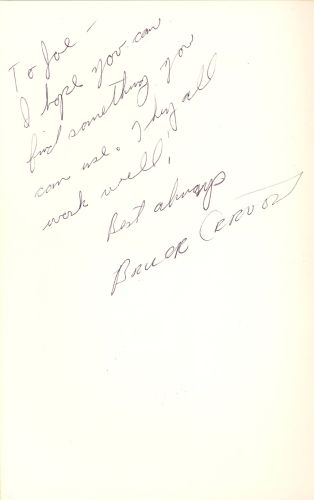 To Joe -
I hope you can
find something you
can use. They all
work well!
Best always
Bruce Cervon